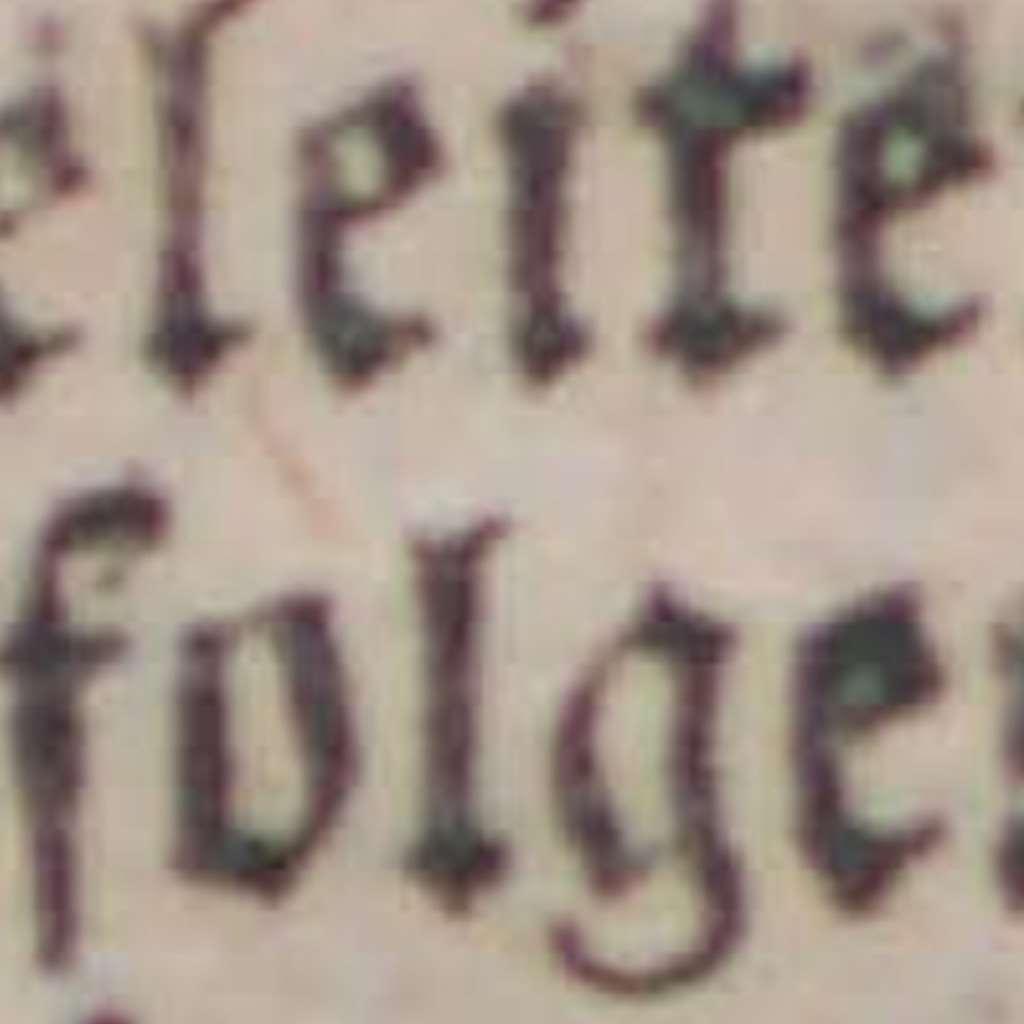 eleite
folge